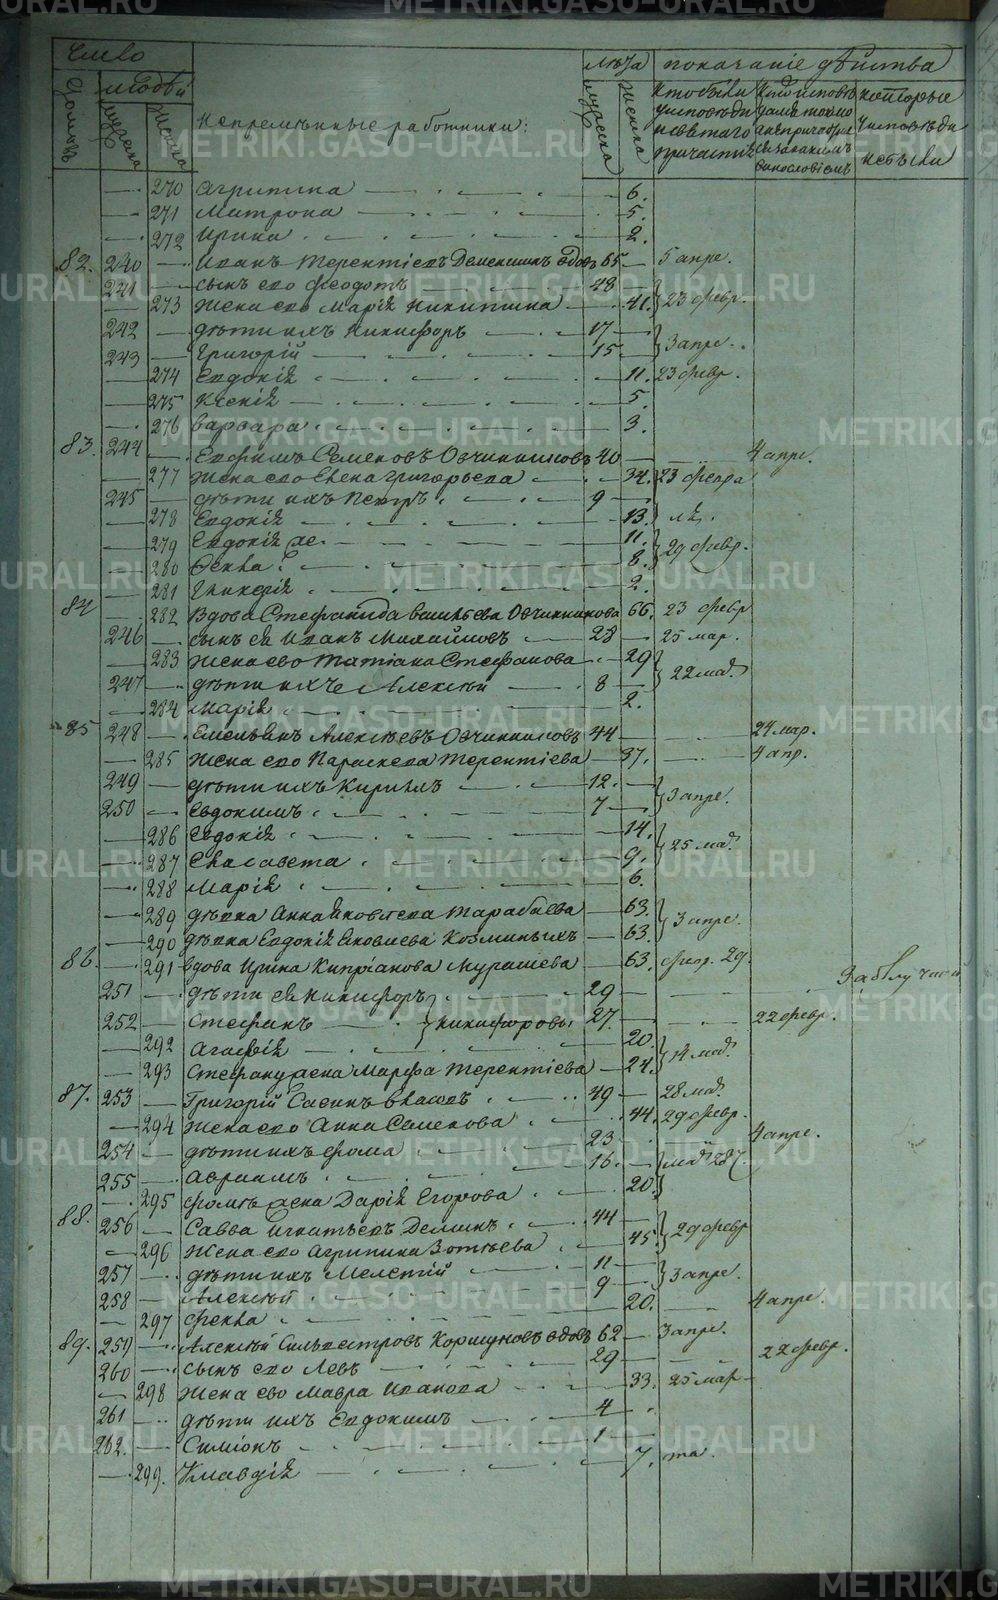 Число
Домовъ
людей
мужска
женска
Непременные работники:
лѣта
мужска
женска
показанiе дѣйства
Кто были у исповѣди и святаго причастiя
Которые у исповѣди небыли
270 Агрипина 6.
271 Матрона 5.
272 Ирина 2.
82. 240 Иванъ Терентiевъ Деменшинъ вдовъ 65 5 апре.
241 сынъ его Феодотъ 48
273 Жена его Марiя Никитина 41. 23 февр.
242 дѣти ихъ Никифоръ 17
243 Григорiй 15 3 апре.
274 Евдокiя 11. 23 февр.
275 Ксенiя 5.
276 Варвара 3.
83. 244 Ефимъ Семеновъ Овчинниковъ 40 4 апре.
277 Жена его Елена Григорьева 34. 23 февра
245 дѣти ихъ Петръ 9
278 Евдокiя 13.
279 Евдокiя же 11.
280 Фекла 8. 29 февр.
281 Гликерiя 2.
84 282 Вдова Стефанида Васильева Овчинникова 66. 23 февр
246 сынъ ея Иванъ Михайловъ 28 25 мар.
283 Жена его Татiана Стефанова 29
247 дѣти ихъ Алексѣй 8 22 мар.
284 Марiя 2.
85 248 Емельянъ Алексѣевъ Овчинниковъ 44 24 мар.
285 Жена его Параскева Терентiева 37. 4 апр.
249 дѣти ихъ Кирилъ 12.
250 Евдокимъ 7 3 апре.
286 Евдокiя 14.
287 Елисавета 9. 25 мар.
288 Марiя 6.
289 дѣвка Анна Яковлева Тарабаева 63.
290 дѣвка Евдокiя Яковлева Козминыхъ 63. 3 апре.
86. 291 вдова Ирина Кипрiанова Мурашева 63. февр. 29.
251 дѣти ея Никифоръ 29
252 Стефанъ Никифоровы 27. 22 февр.
292 Агафiя 20.
293 Стефану жена Марфа Терентiева 24. 14 мар.
87. 253 Григорiй Савинъ Власовъ 49 28 мар.
294 Жена его Анна Семенова 44. 29 февр.
254 дѣти ихъ Фома 23 4 апре.
255 Авраамъ 16.
295 Фомѣ жена Дарiя Егорова 20.
88. 256 Савва Игнатьевъ Деминъ 44
296 Жена его Агрипина Зотѣева 45. 29 февр
257 дѣти ихъ Мелетiй 11
258 Алексѣй 9 3 апре.
297 Фекла 20. 4 апре.
89. 259 Алексѣй Сильвестровъ Коршуновъ вдовъ 62 3 апре.
260 сынъ его Левъ 29 22 февр.
298 Жена его Мавра Иванова 33. 25 мар
261 дѣти ихъ Евдокимъ 4
262. Симiонъ 1
299. Клавдiя 7. та.
METRIKI.GASO-URAL.RU